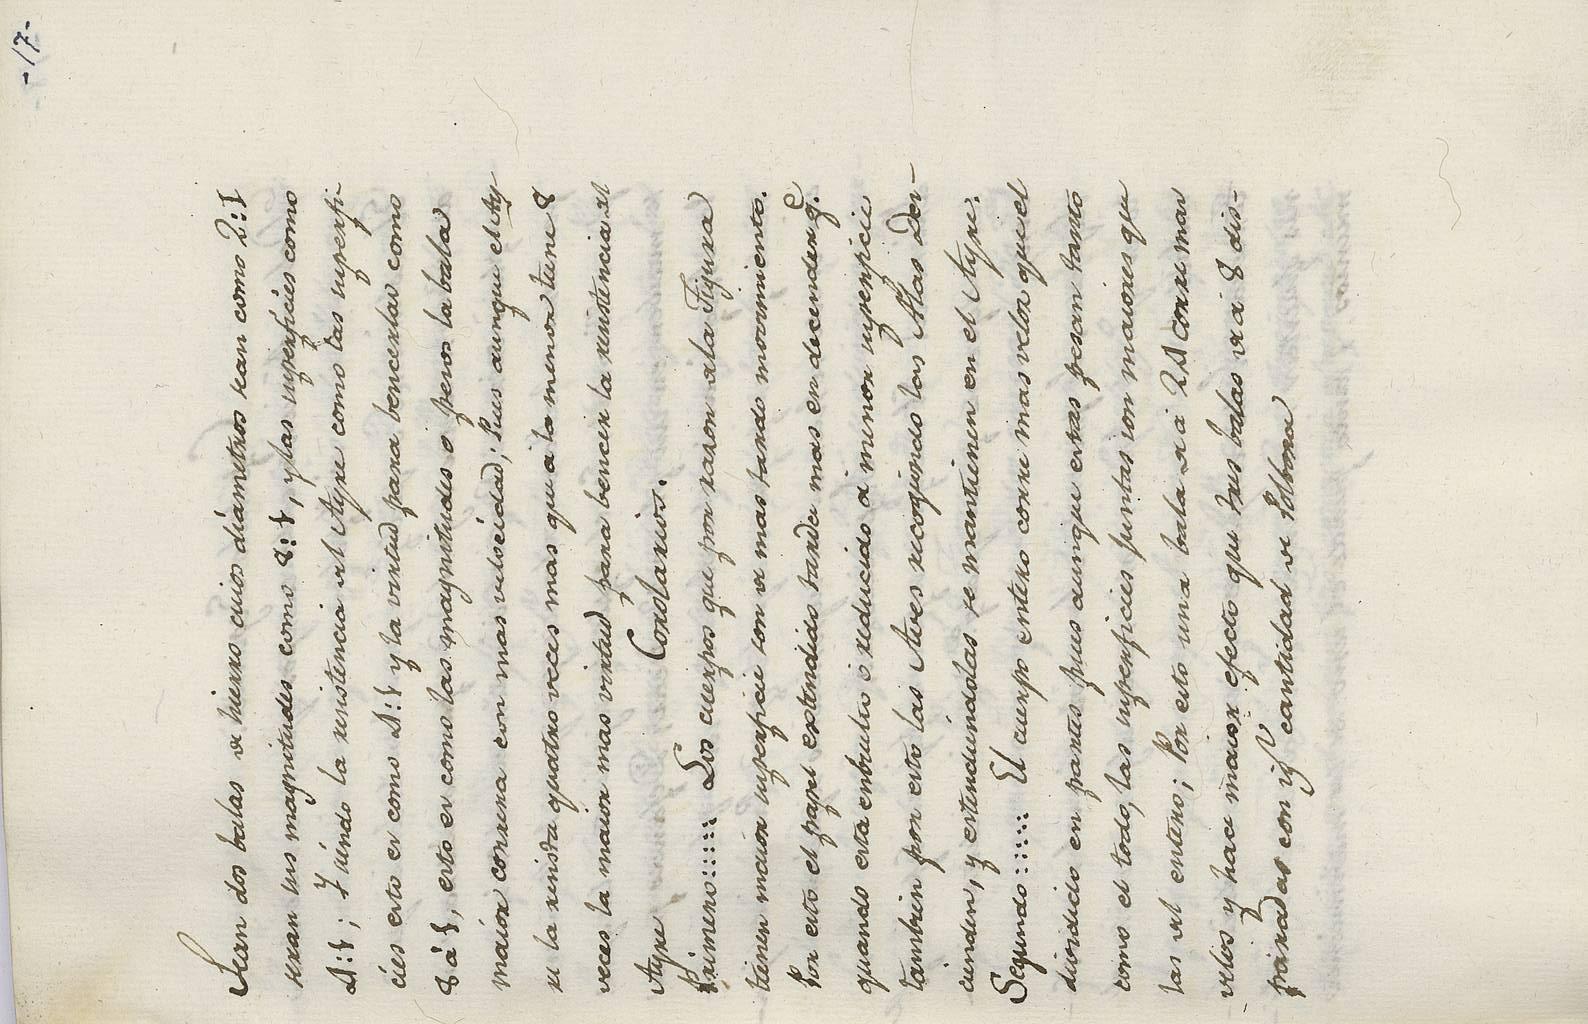 -17-
Sean dos balas de hierro cuios diametros sean como 2:1
seran sus magnitudes como 8:1, y las superficies como
4:1; Y siendo la resistencia del Ayre como las superfi
cies esto es como 4:1 y la virtud para bencerlas como
8 á 1, esto es como las magnitudes o pesos la bala
maior correra con mas velocidad; Pues aunque el Ay-
re la resista quatro veces mas que a la menor tiene 8
veces la maior mas virtud para bencer la resistencia del
Ayre
Corolarios.
Primero::::: Los cuerpos que por razon de la Figura
tienen maior superficie son de mas tardo movimiento.
Por esto el papel extendido tarda mas en decender q.e
quando esta enbuelto o reducido á menor superficie
tambien por esto las Aves recogiendo las Alas Des-
cienden, y estendiendolas se mantienen en el Ayre.
Segundo::::: El cuerpo entero corre mas veloz que el
dividido en partes pues aunque estas pesan tanto
como el todo, las superficies juntas son maiores que
las del entero; Por esto una bala de á 24 corre mas
velos y hace maior efecto que tres balas de á 8 dis-
paradas con ig.l cantidad de Polbora